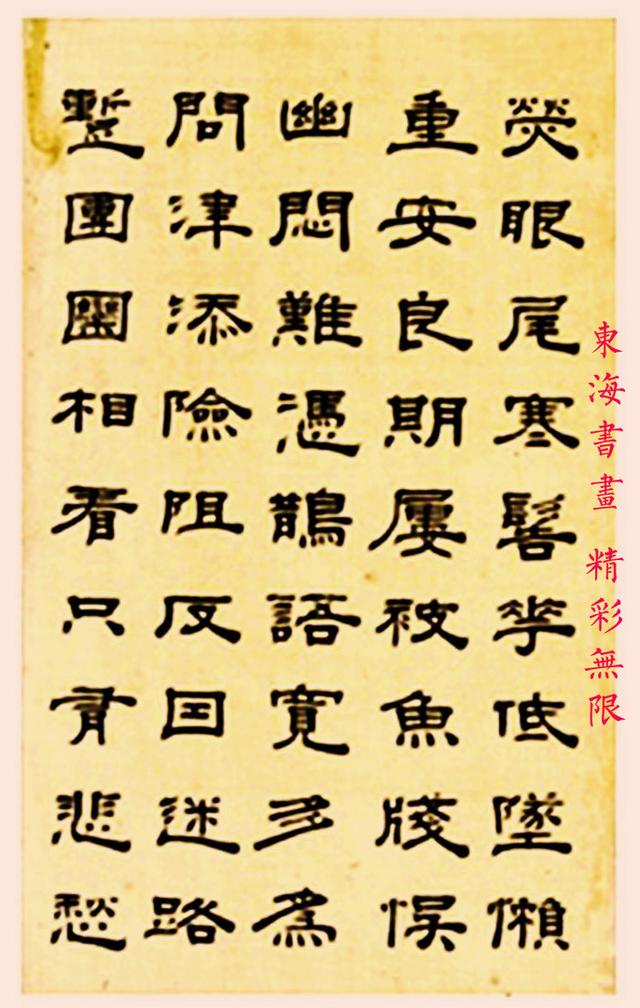 熒眼尾寒髻花低墜懶
重安良期屢被魚牋悞
幽悶難憑鵲語寬多爲
問津添險阻反囙迷路
蹔團圞相看只有悲愁
東海書畫 精彩無限